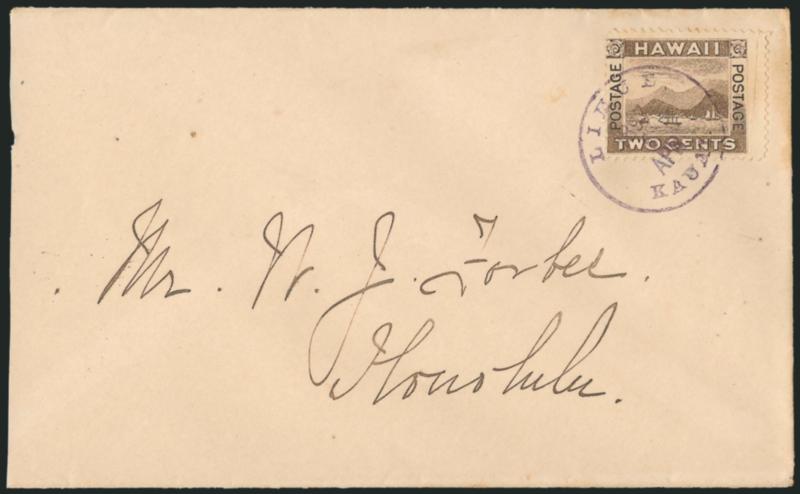 HAWAII
POSTAGE
POSTAGE
TWO CENTS
APR
KAUAI
Mr. W. J. Forbes.
Honolulu.